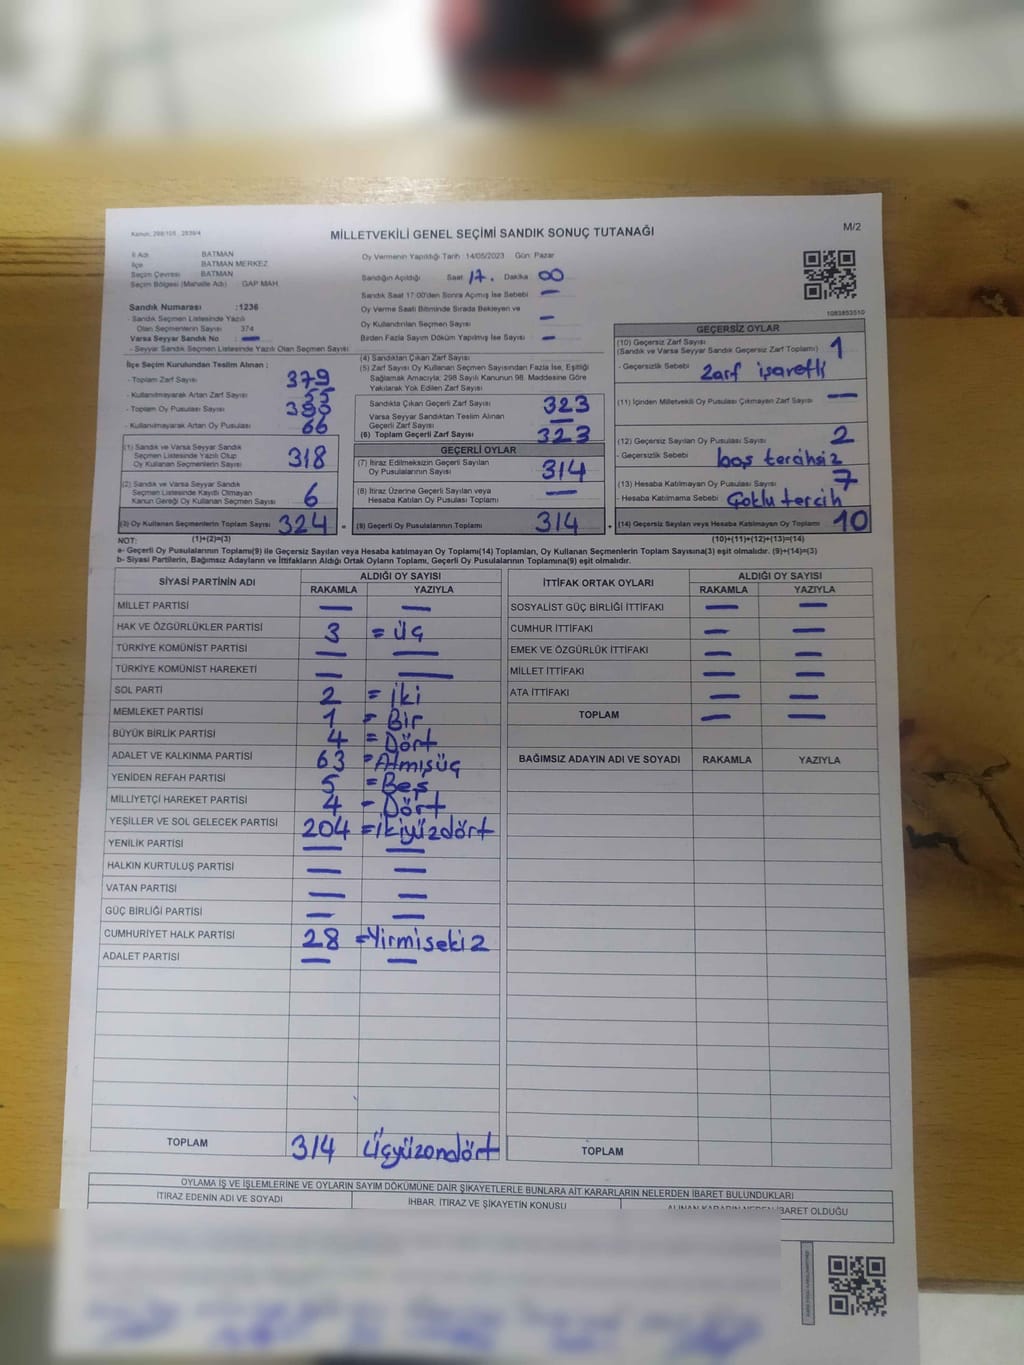 Kanun, 298/105 , 2839/4
MİLLETVEKİLİ GENEL SEÇİMİ SANDIK SONUÇ TUTANAĞI
M/2
İl Adı BATMAN
İlçe BATMAN MERKEZ
Seçim Çevresi BATMAN
Seçim Bölgesi (Mahalle Adı) GAP MAH.
Oy Vermenin Yapıldığı Tarih :14/05/2023 Gün: Pazar
Sandığın Açıldığı Saat 17. Dakika 00
Sandık Saat 17:00'den Sonra Açımış İse Sebebi —
Oy Verme Saati Bitiminde Sırada Bekleyen ve
Oy Kullandırılan Seçmen Sayısı —
Birden Fazla Sayım Döküm Yapılmış İse Sayısı —
1083853510
Sandık Numarası :1236
- Sandık Seçmen Listesinde Yazılı
Olan Seçmenlerin Sayısı 374
Varsa Seyyar Sandık No —
- Seyyar Sandık Seçmen Listesinde Yazılı Olan Seçmen Sayısı
İlçe Seçim Kurulundan Teslim Alınan :
- Toplam Zarf Sayısı 379
- Kullanılmayarak Artan Zarf Sayısı 55
- Toplam Oy Pusulası Sayısı
- Kullanılmayarak Artan Oy Pusulası 66
(1) Sandık ve Varsa Seyyar Sandık
Seçmen Listesinde Yazılı Olup
Oy Kullanan Seçmenlerin Sayısı 318
(2) Sandık ve Varsa Seyyar Sandık
Seçmen Listesinde Kayıtlı Olmayan
Kanun Gereği Oy Kullanan Seçmen Sayısı 6
(3) Oy Kullanan Seçmenlerin Toplam Sayısı 324 =
(1)+(2)=(3)
(4) Sandıktan Çıkan Zarf Sayısı
(5) Zarf Sayısı Oy Kullanan Seçmen Sayısından Fazla İse, Eşitliği
Sağlamak Amacıyla; 298 Sayılı Kanunun 98. Maddesine Göre
Yakılarak Yok Edilen Zarf Sayısı
Sandıkta Çıkan Geçerli Zarf Sayısı 323
Varsa Seyyar Sandıktan Teslim Alınan
Geçerli Zarf Sayısı —
(6) Toplam Geçerli Zarf Sayısı 323
GEÇERLİ OYLAR
(7) İtiraz Edilmeksizin Geçerli Sayılan
Oy Pusulalarının Sayısı 314
(8) İtiraz Üzerine Geçerli Sayılan veya
Hesaba Katılan Oy Pusulası Toplamı —
(9) Geçerli Oy Pusulalarının Toplamı 314 +
GEÇERSİZ OYLAR
(10) Geçersiz Zarf Sayısı 1
(Sandık ve Varsa Seyyar Sandık Geçersiz Zarf Toplamı)
- Geçersizlik Sebebi Zarf işaretli
(11) İçinden Milletvekili Oy Pusulası Çıkmayan Zarf Sayısı —
(12) Geçersiz Sayılan Oy Pusulası Sayısı 2
- Geçersizlik Sebebi boş tercihsiz
(13) Hesaba Katılmayan Oy Pusulası Sayısı 7
- Hesaba Katılmama Sebebi Çoklu tercih
(14) Geçersiz Sayılan veya Hesaba Katılmayan Oy Toplamı 10
(10)+(11)+(12)+(13)=(14)
NOT:
a- Geçerli Oy Pusulalarının Toplamı(9) ile Geçersiz Sayılan veya Hesaba katılmayan Oy Toplamı(14) Toplamları, Oy Kullanan Seçmenlerin Toplam Sayısına(3) eşit olmalıdır. (9)+(14)=(3)
b- Siyasi Partilerin, Bağımsız Adayların ve İttifakların Aldığı Ortak Oyların Toplamı, Geçerli Oy Pusulalarının Toplamına(9) eşit olmalıdır.
SİYASİ PARTİNİN ADI ALDIĞI OY SAYISI
RAKAMLA YAZIYLA
MİLLET PARTİSİ — —
HAK VE ÖZGÜRLÜKLER PARTİSİ 3 = Üç
TÜRKİYE KOMÜNİST PARTİSİ — —
TÜRKİYE KOMÜNİST HAREKETİ — —
SOL PARTİ 2 = İki
MEMLEKET PARTİSİ 1 = Bir
BÜYÜK BİRLİK PARTİSİ 4 = Dört
ADALET VE KALKINMA PARTİSİ 63 = Atmışüç
YENİDEN REFAH PARTİSİ 5 = Beş
MİLLİYETÇİ HAREKET PARTİSİ 4 - Dört
YEŞİLLER VE SOL GELECEK PARTİSİ 204 = İkiyüzdört
YENİLİK PARTİSİ — —
HALKIN KURTULUŞ PARTİSİ — —
VATAN PARTİSİ — —
GÜÇ BİRLİĞİ PARTİSİ — —
CUMHURİYET HALK PARTİSİ 28 = Yirmisekiz
ADALET PARTİSİ — —
TOPLAM 314 Üçyüzondört
İTTİFAK ORTAK OYLARI ALDIĞI OY SAYISI
RAKAMLA YAZIYLA
SOSYALİST GÜÇ BİRLİĞİ İTTİFAKI — —
CUMHUR İTTİFAKI — —
EMEK VE ÖZGÜRLÜK İTTİFAKI — —
MİLLET İTTİFAKI — —
ATA İTTİFAKI — —
TOPLAM — —
BAĞIMSIZ ADAYIN ADI VE SOYADI RAKAMLA YAZIYLA
TOPLAM
OYLAMA İŞ VE İŞLEMLERİNE VE OYLARIN SAYIM DÖKÜMÜNE DAİR ŞİKAYETLERLE BUNLARA AİT KARARLARIN NELERDEN İBARET BULUNDUKLARI
İTİRAZ EDENİN ADI VE SOYADI İHBAR, İTİRAZ VE ŞİKAYETİN KONUSU ALINAN KARARIN NEDEN İBARET OLDUĞU